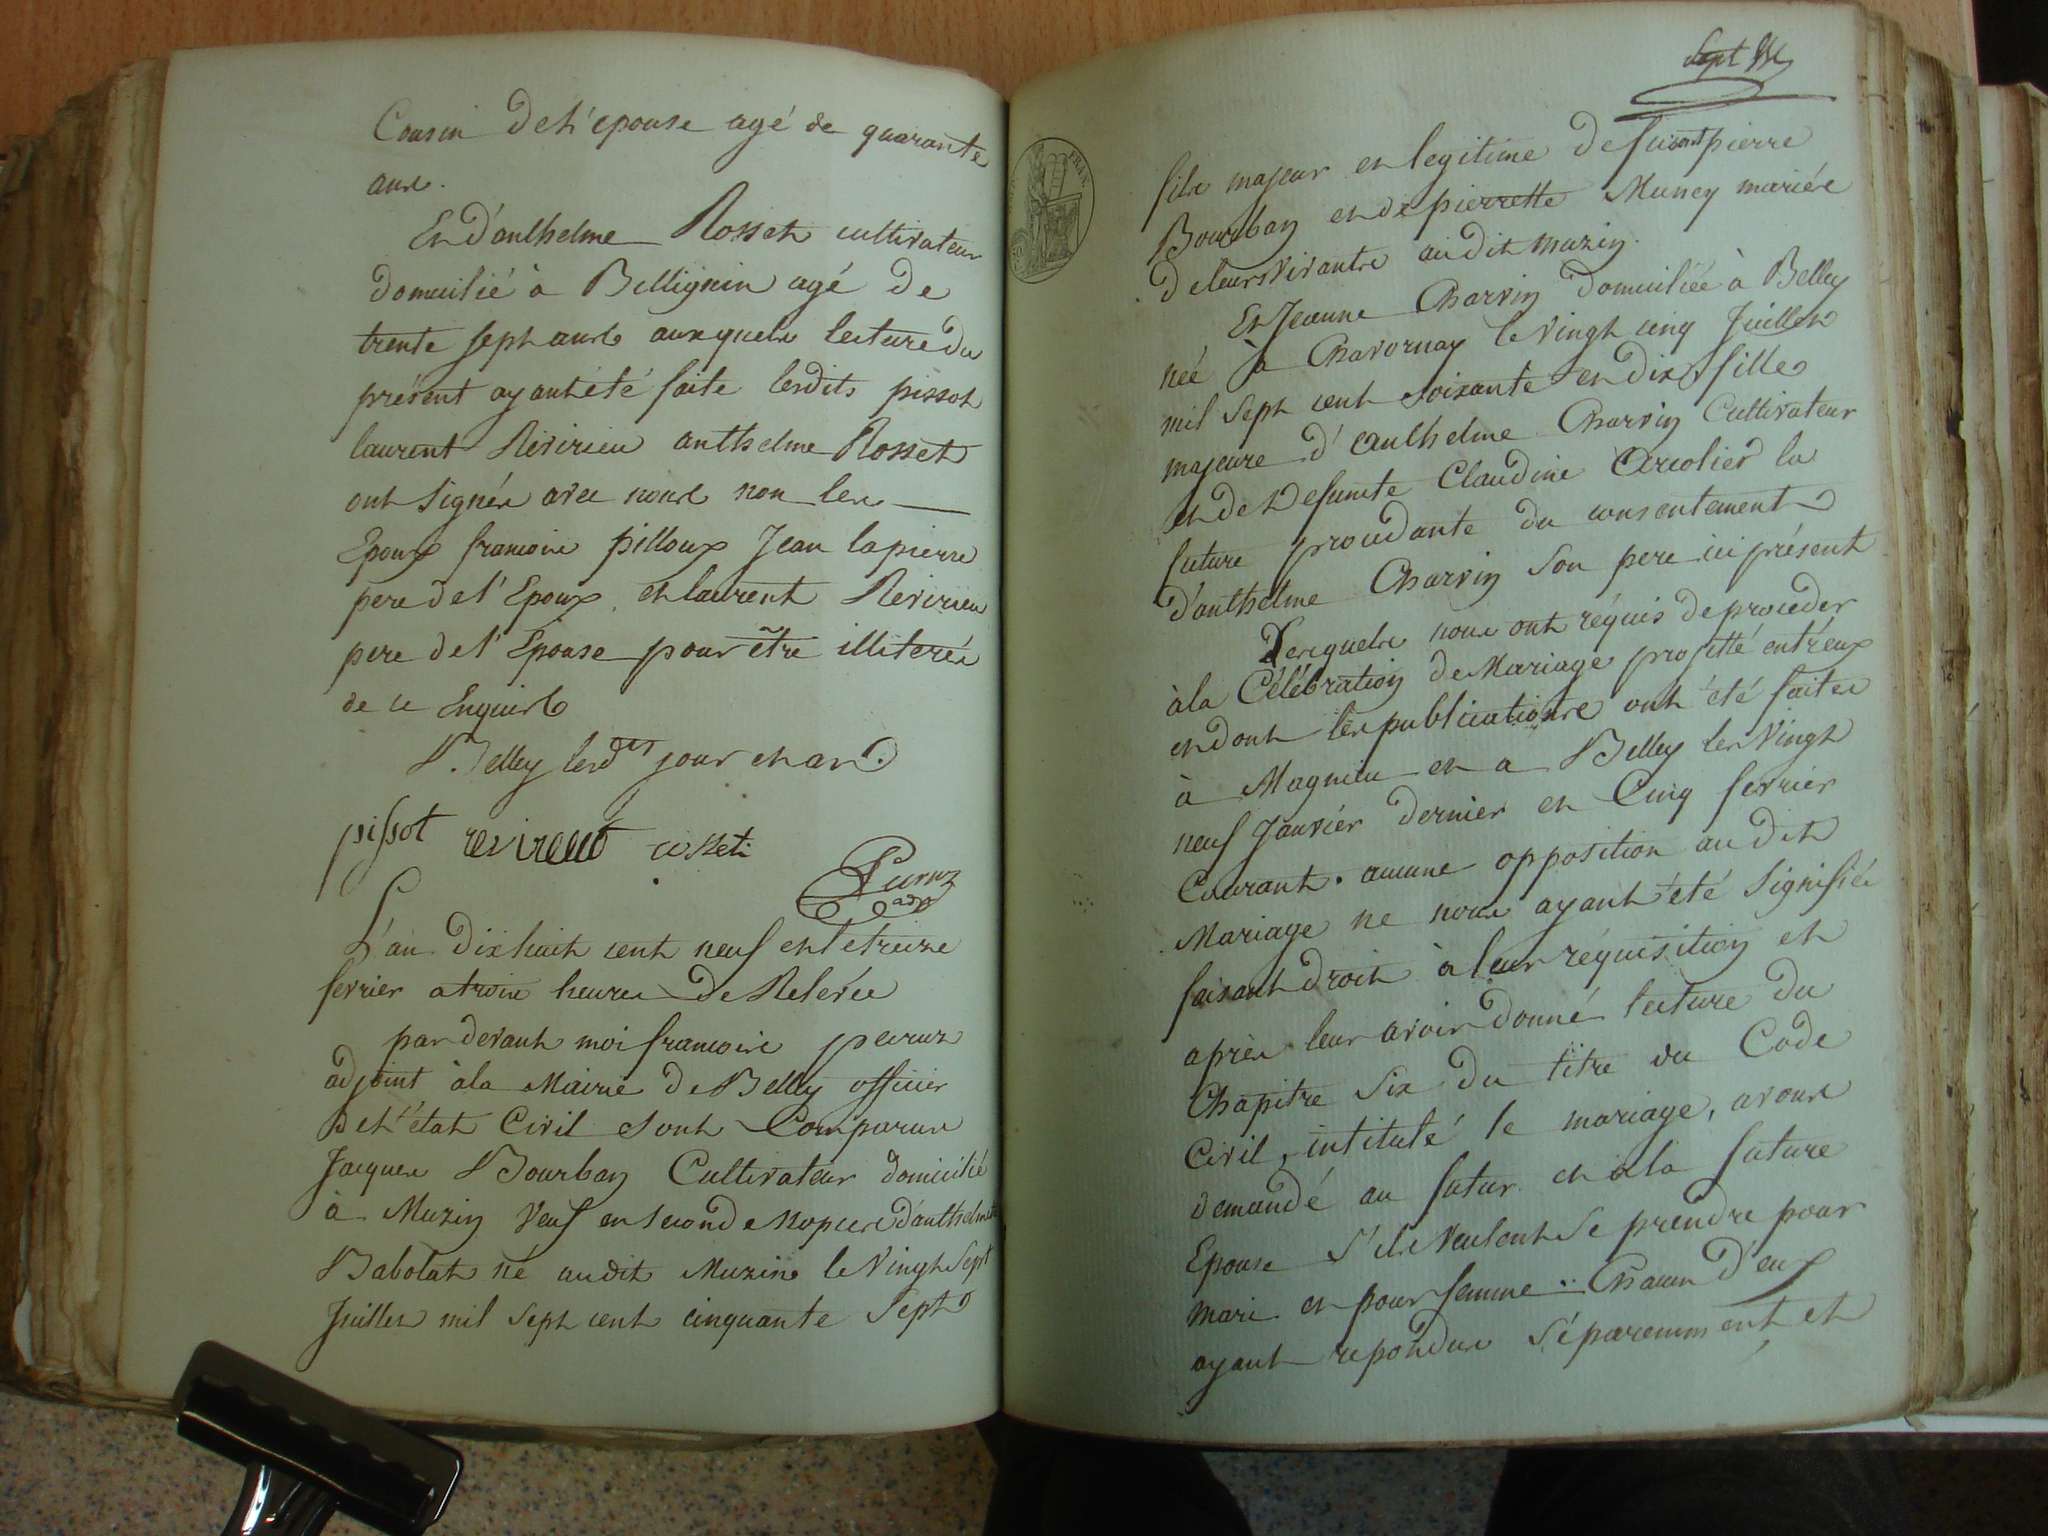 Cousin de l'epouse agé de quarante
ans.
Et d'anthelme Rosset cultivateur
domicilié à Bellignin agé de
trente sept ans auxquels lecture du
présent ayant été faite lesdits pissot
laurent Revirieu anthelme Rosset
ont signés avec nous non les
Epoux francois pilloux Jean lapierre
pere de l'Epoux et laurent Revirieu
pere de l'Epouse pour être illiterés
de ce Enquis
Belley lesd jour et an
pissot revireut rosset
Peuruz
adjt
L'an dix huit cent neuf et le treize
fevrier a trois heures de Relevée
par devant moi francois peuruz
adjoint à la Mairie de Belley officier
de l'état Civil sont Comparus
Jacques Bourbon Cultivateur domicilié
à Muzin Veuf en seconde nopces d'anthelmette
Babolat né audit Muzin le Vingt Sept
Juillet mil Sept cent cinquante Sept
Sept
fils majeur et legitime de feu pierre
Bourbon et de pierrette Muney mariés
de leurs vivants audit Muzin.
Et Jeanne Charvin domiciliée à Belley
née à Chavornay le vingt cinq Juillet
mil Sept cent Soixante et dix fille
majeure d'anthelme Charvin Cultivateur
et de Defunte Claudine Cercolier la
future procedante du consentement
d'anthelme Charvin Son pere ici présent
Lesquels nous ont réquis de proceder
à la Célébration de Mariage projetté entr'eux
et dont les publications ont été faites
à Magnieu et a Belley les Vingt
neuf Janvier dernier et Cinq fevrier
Courant. aucune opposition audit
Mariage ne nous ayant été Signifiée
faisant droit à leur réquisition et
après leur avoir donné lecture du
Chapitre Six du titre du Code
Civil, intitulé le mariage, avons
demandé au futur et à la future
Epouse S'ils veulent se prendre pour
mari et pour femme. Chacun d'eux
ayant repondus Séparemment, et